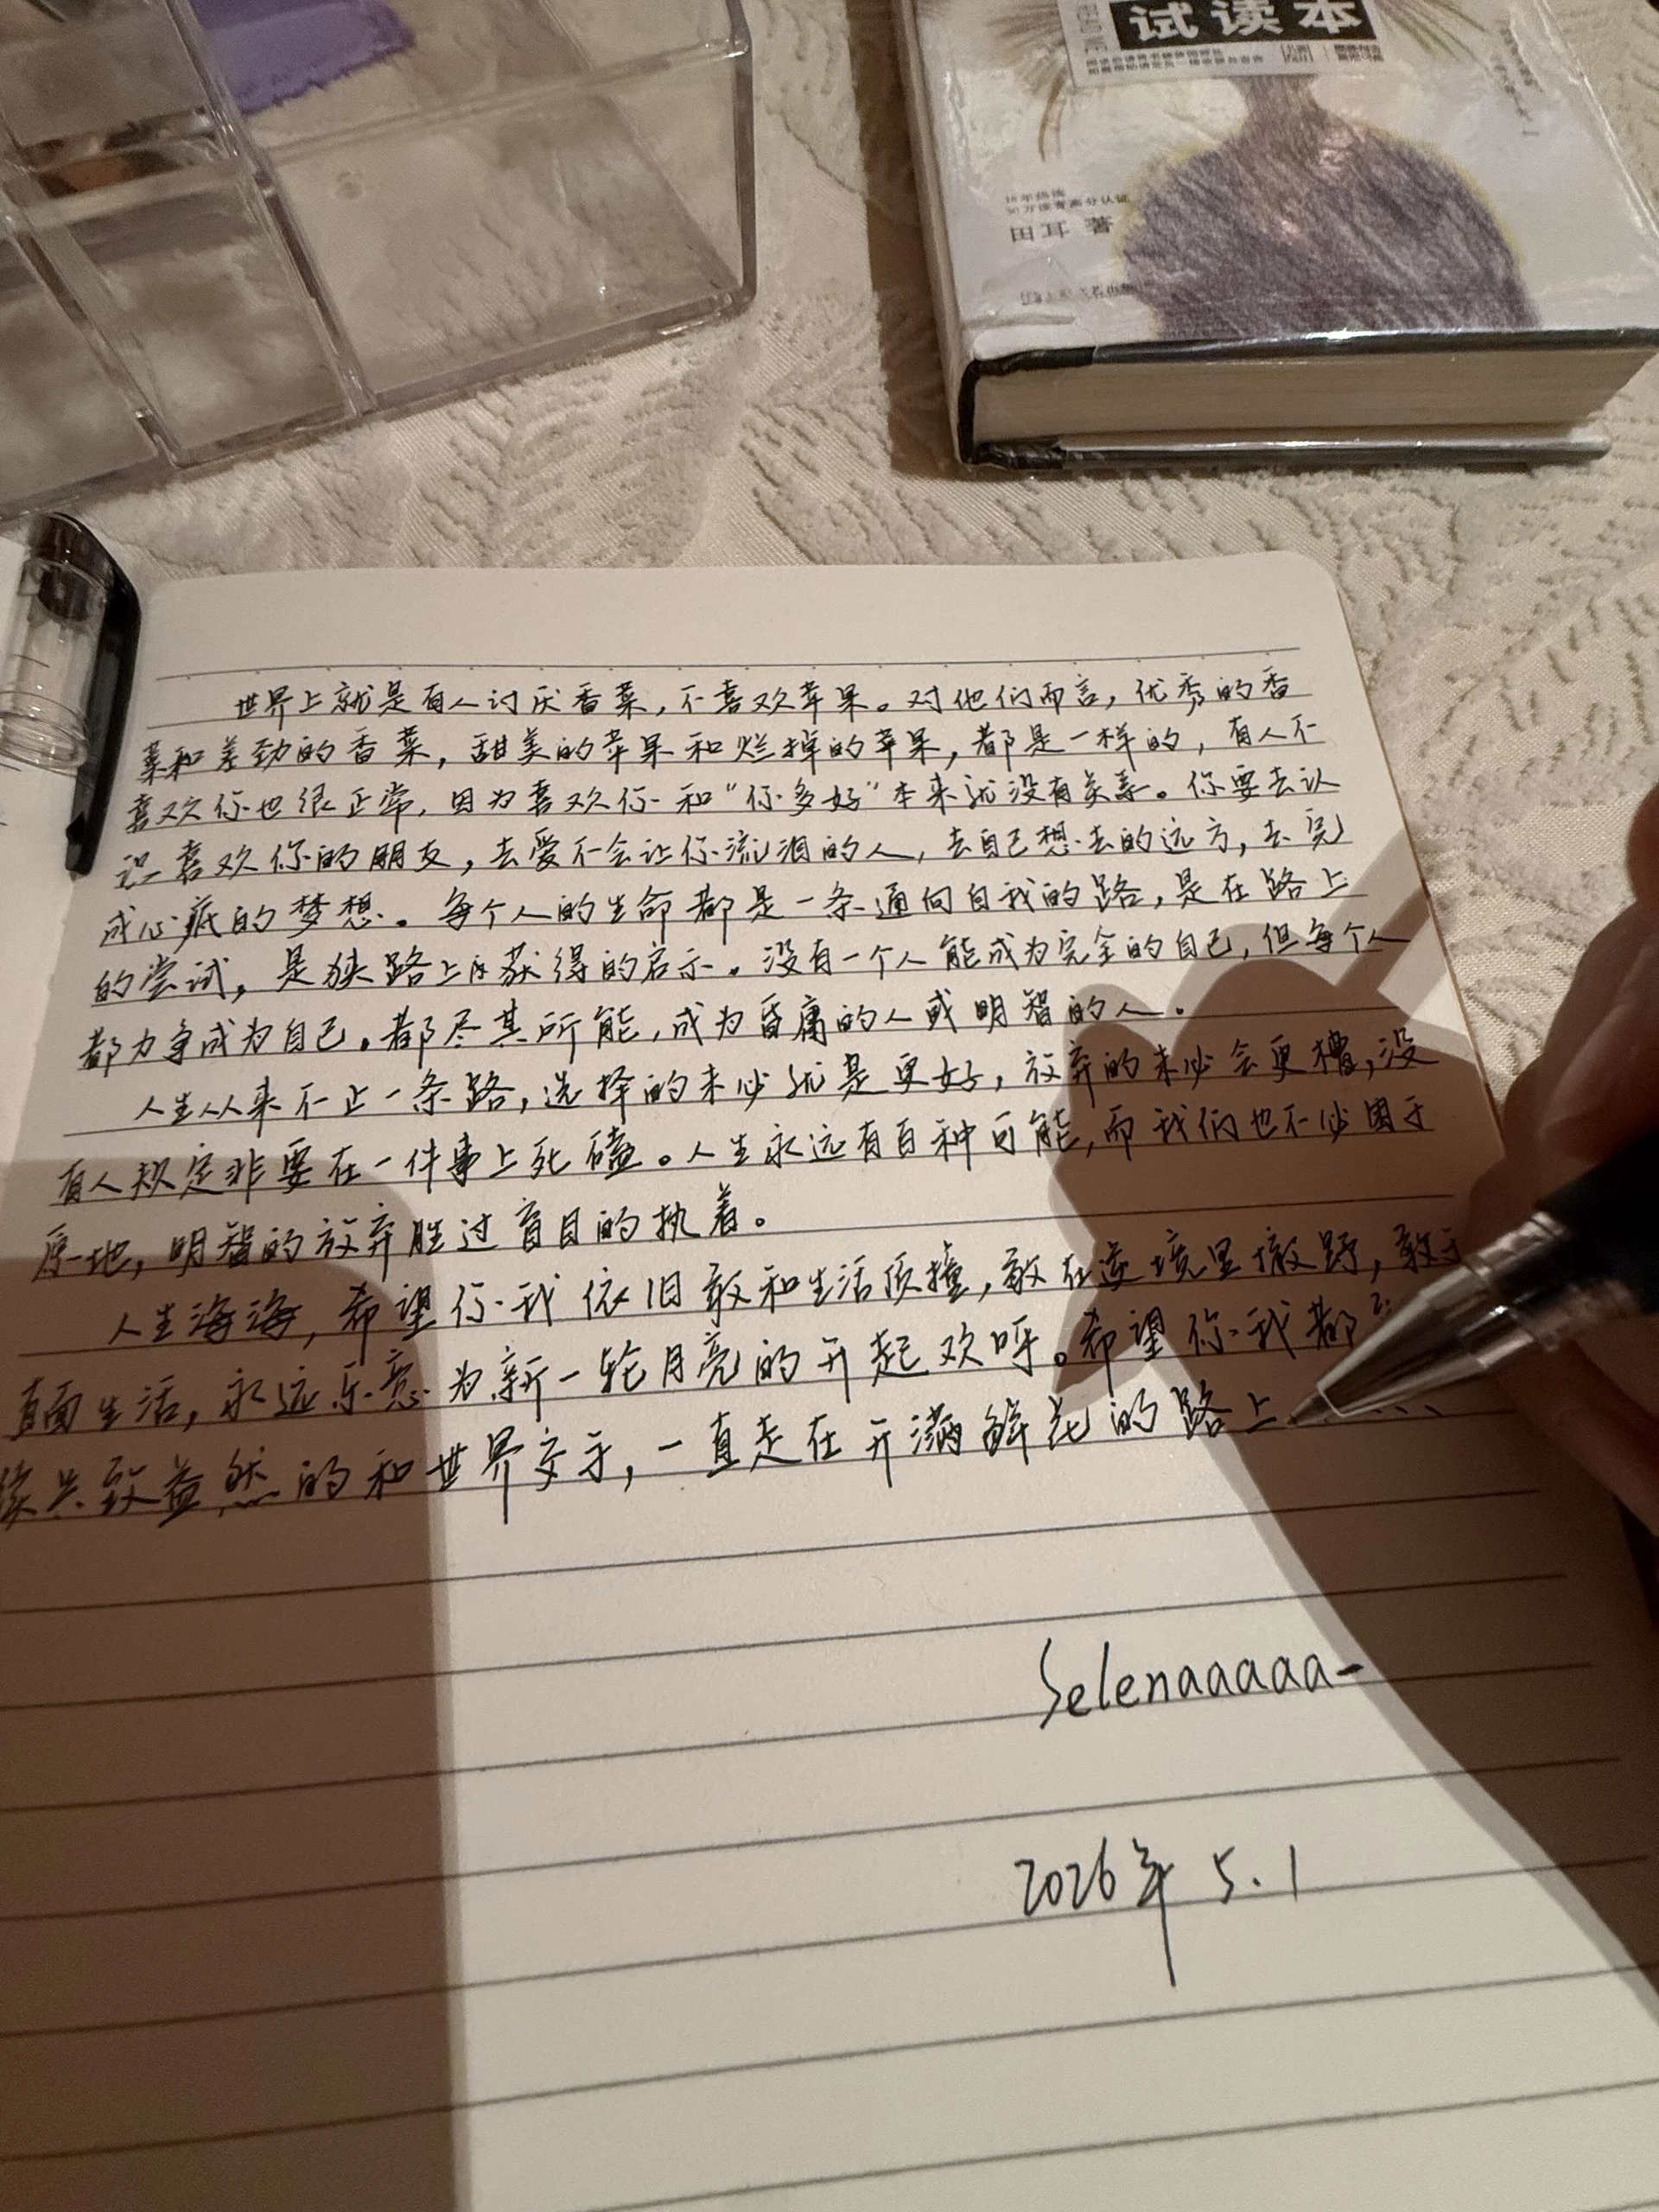 试读本
田耳 著
世界上就是有人讨厌香菜，不喜欢苹果。对他们而言，优秀的香
菜和差劲的香菜，甜美的苹果和烂掉的苹果，都是一样的，有人不
喜欢你也很正常，因为喜欢你和“你多好”本来就没有关系。你要去认
识喜欢你的朋友，去爱不会让你流泪的人，去自己想去的远方，去完
成心底的梦想。每个人的生命都是一条通向自我的路，是在路上
的尝试，是狭路上所获得的启示。没有一个人能成为完全的自己，但每个人
都力争成为自己。都尽其所能，成为昏庸的人或明智的人。
人生从来不止一条路，选择的未必就是更好，放弃的未必会更糟，没
有人规定非要在一件事上死磕。人生永远有百种可能，而我们也不必困于
原地，明智的放弃胜过盲目的执着。
人生海海，希望你我依旧敢和生活顶撞，敢在逆境里撒野，敢于
直面生活，永远乐意为新一轮月亮的升起欢呼。希望你我都
续兴致益然的和世界交手，一直走在开满鲜花的路上……
Selenaaaaa-
2026年 5.1